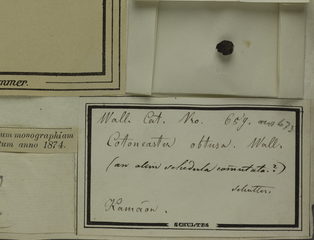 mmer.
um monographiam
tum anno 1874.
Wall. Cat. Nro. 659.
Cotoneaster obtusa. Wall.
(an olim schedula commutata?)
Kamaon.
SCHULTES